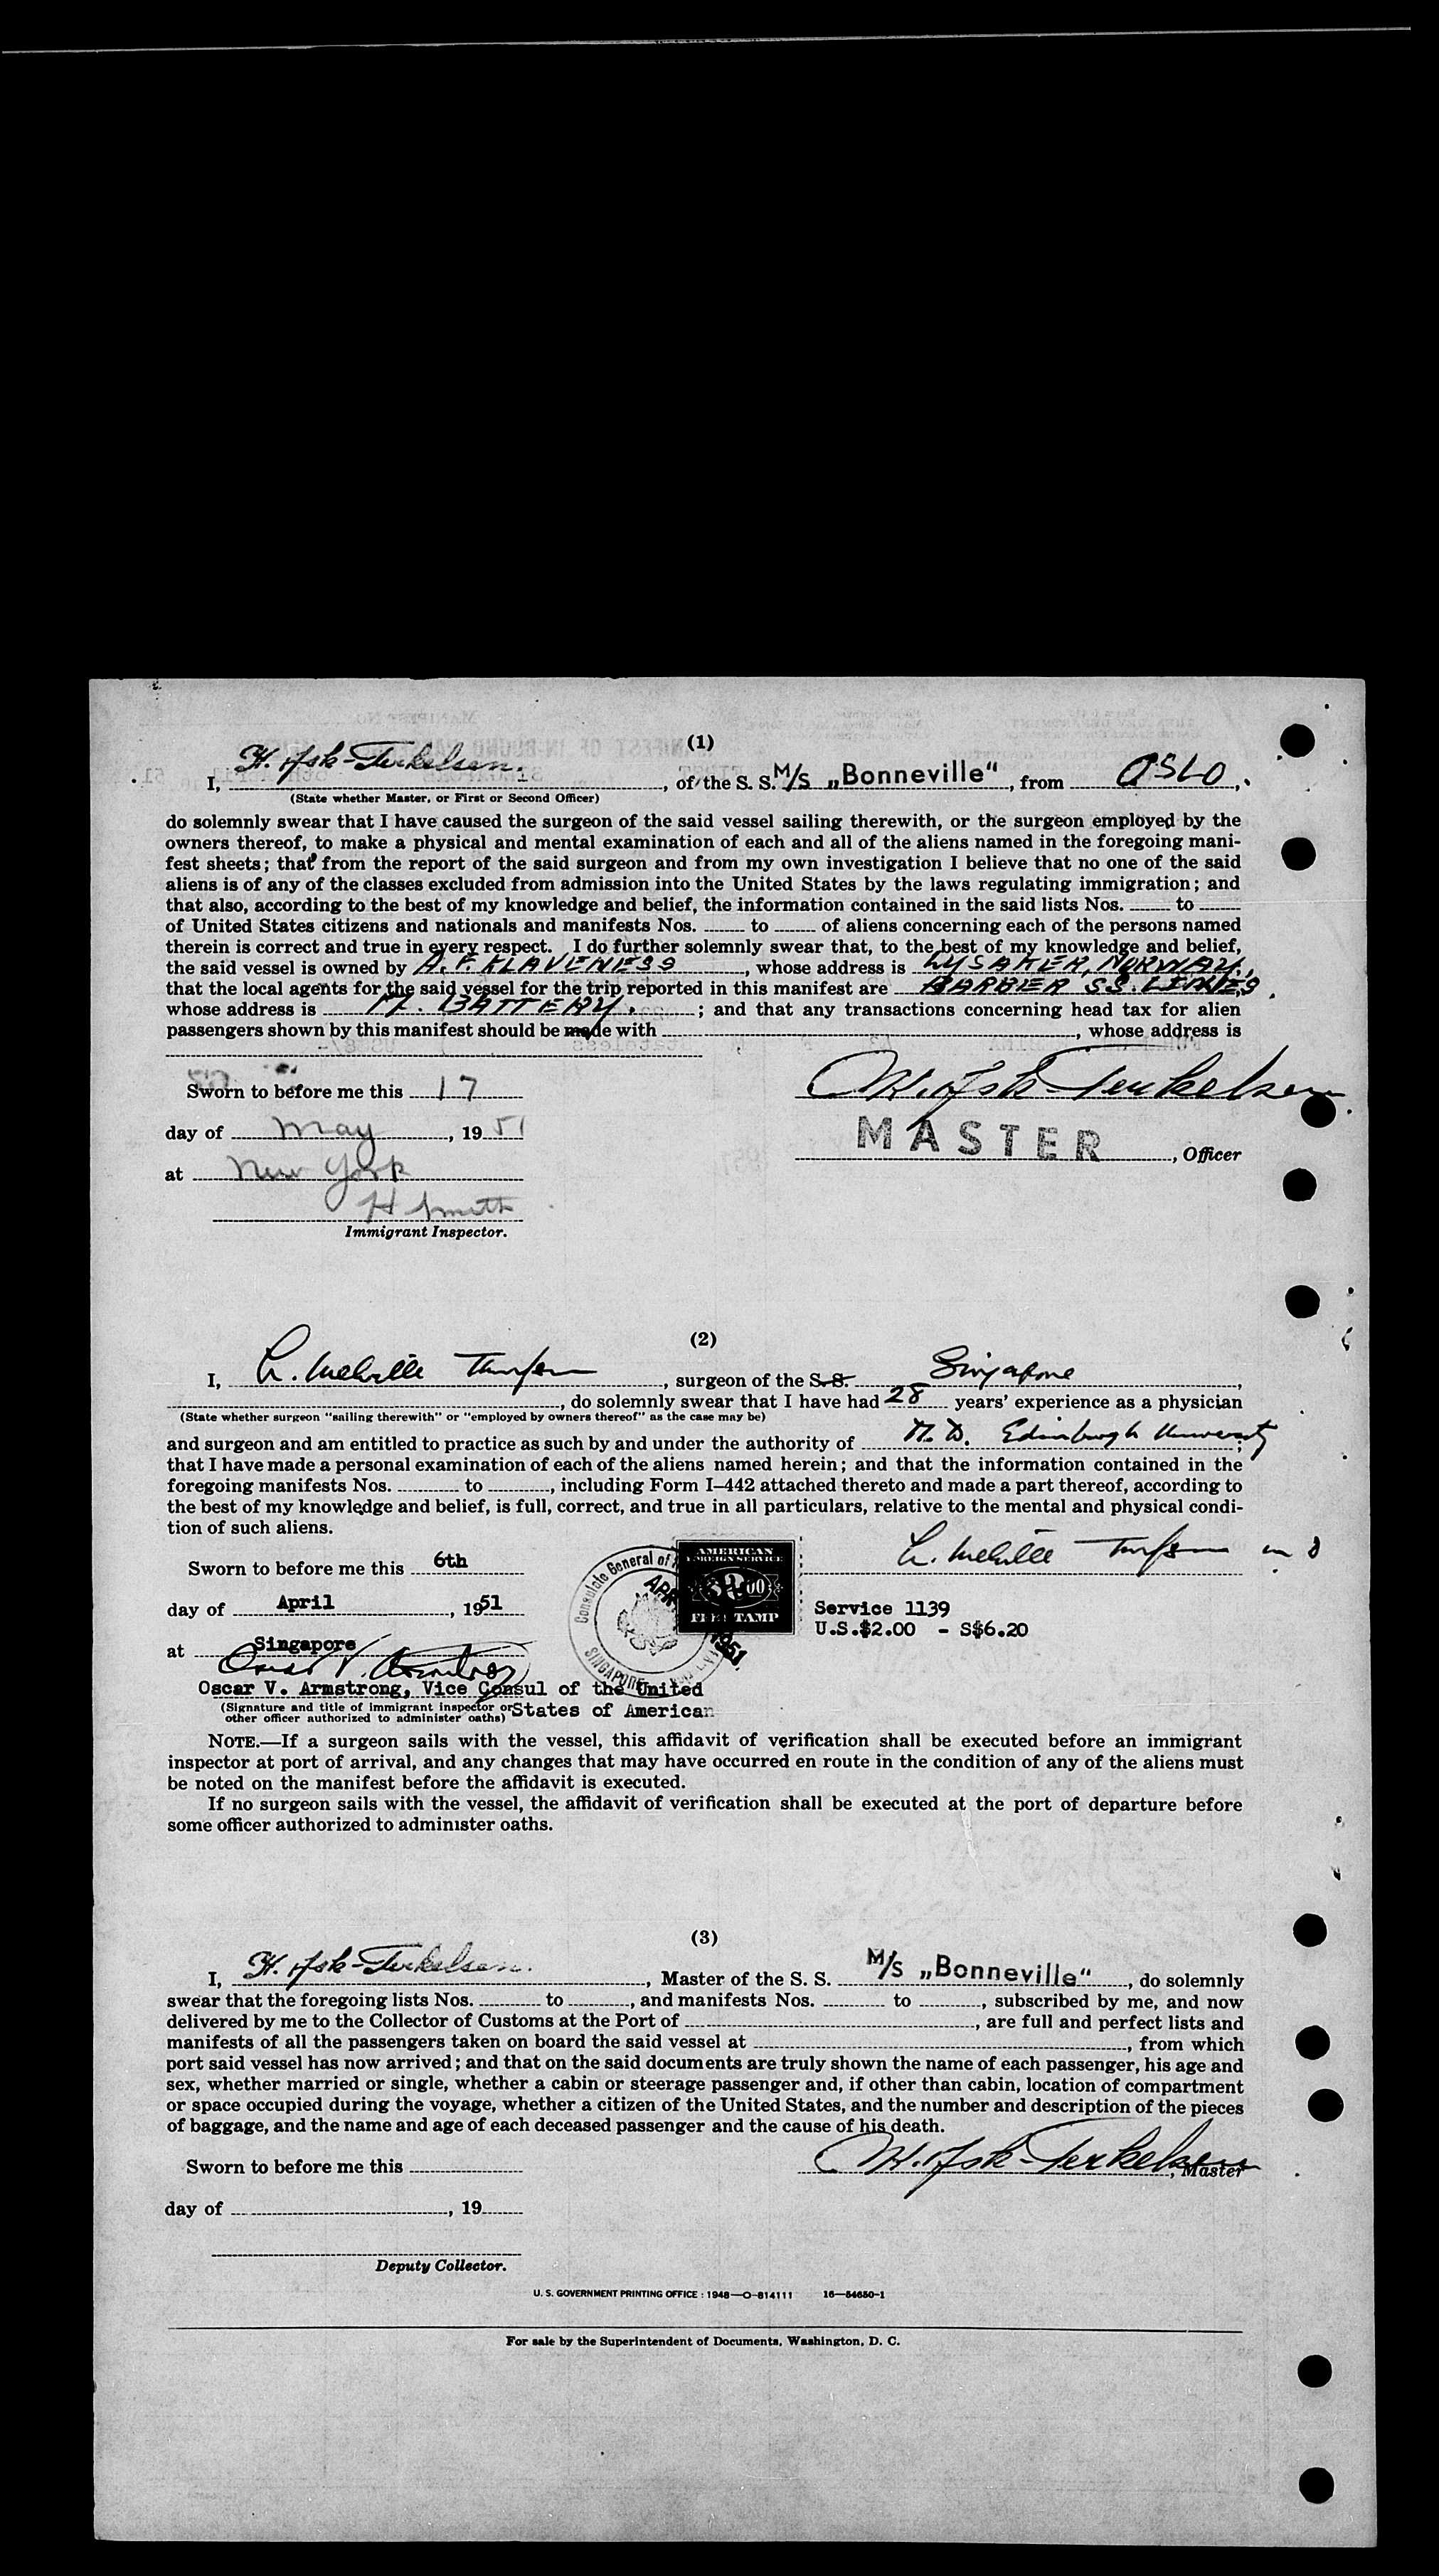 (1)
I, H. Ask-Terkelsen. , of the S. S. M/S „Bonneville“ , from OSLO ,
(State whether Master, or First or Second Officer)
do solemnly swear that I have caused the surgeon of the said vessel sailing therewith, or the surgeon employed by the
owners thereof, to make a physical and mental examination of each and all of the aliens named in the foregoing mani-
fest sheets; that from the report of the said surgeon and from my own investigation I believe that no one of the said
aliens is of any of the classes excluded from admission into the United States by the laws regulating immigration; and
that also, according to the best of my knowledge and belief, the information contained in the said lists Nos. ........ to ........
of United States citizens and nationals and manifests Nos. ........ to ........ of aliens concerning each of the persons named
therein is correct and true in every respect. I do further solemnly swear that, to the best of my knowledge and belief,
the said vessel is owned by A. F. KLAVENESS , whose address is LYSAKER, NORWAY. ,
that the local agents for the said vessel for the trip reported in this manifest are BARBER SS. LINES,
whose address is BATTERY. ; and that any transactions concerning head tax for alien
passengers shown by this manifest should be made with ........ , whose address is
Sworn to before me this 17
H. Ask-Terkelsen
day of May , 19 51
MASTER , Officer
at New York
H Smith
Immigrant Inspector.
(2)
I, L. Melville , surgeon of the S. S. Singapore ,
........ , do solemnly swear that I have had 28 years’ experience as a physician
(State whether surgeon “sailing therewith” or “employed by owners thereof” as the case may be)
and surgeon and am entitled to practice as such by and under the authority of M. D. Edinburgh University ;
that I have made a personal examination of each of the aliens named herein; and that the information contained in the
foregoing manifests Nos. ........ to ........, including Form I–442 attached thereto and made a part thereof, according to
the best of my knowledge and belief, is full, correct, and true in all particulars, relative to the mental and physical condi-
tion of such aliens.
Sworn to before me this 6th
L. Melville
AMERICAN
FOREIGN SERVICE
$2.00
FEE STAMP
Consulate General of
SINGAPORE
APR 1951
day of April , 1951
Service 1139
U.S.$2.00 - S$6.20
at Singapore
Oscar V. Armstrong
Oscar V. Armstrong, Vice Consul of the United
(Signature and title of immigrant inspector or States of American
other officer authorized to administer oaths)
NOTE.—If a surgeon sails with the vessel, this affidavit of verification shall be executed before an immigrant
inspector at port of arrival, and any changes that may have occurred en route in the condition of any of the aliens must
be noted on the manifest before the affidavit is executed.
If no surgeon sails with the vessel, the affidavit of verification shall be executed at the port of departure before
some officer authorized to administer oaths.
(3)
I, H. Ask-Terkelsen. , Master of the S. S. M/S „Bonneville“ , do solemnly
swear that the foregoing lists Nos. ........ to ........, and manifests Nos. ........ to ........, subscribed by me, and now
delivered by me to the Collector of Customs at the Port of ........, are full and perfect lists and
manifests of all the passengers taken on board the said vessel at ........, from which
port said vessel has now arrived; and that on the said documents are truly shown the name of each passenger, his age and
sex, whether married or single, whether a cabin or steerage passenger and, if other than cabin, location of compartment
or space occupied during the voyage, whether a citizen of the United States, and the number and description of the pieces
of baggage, and the name and age of each deceased passenger and the cause of his death.
Sworn to before me this ........
H. Ask-Terkelsen , Master
day of ........, 19........
Deputy Collector.
U. S. GOVERNMENT PRINTING OFFICE : 1948—O-814111 16—54650-1
For sale by the Superintendent of Documents, Washington, D. C.